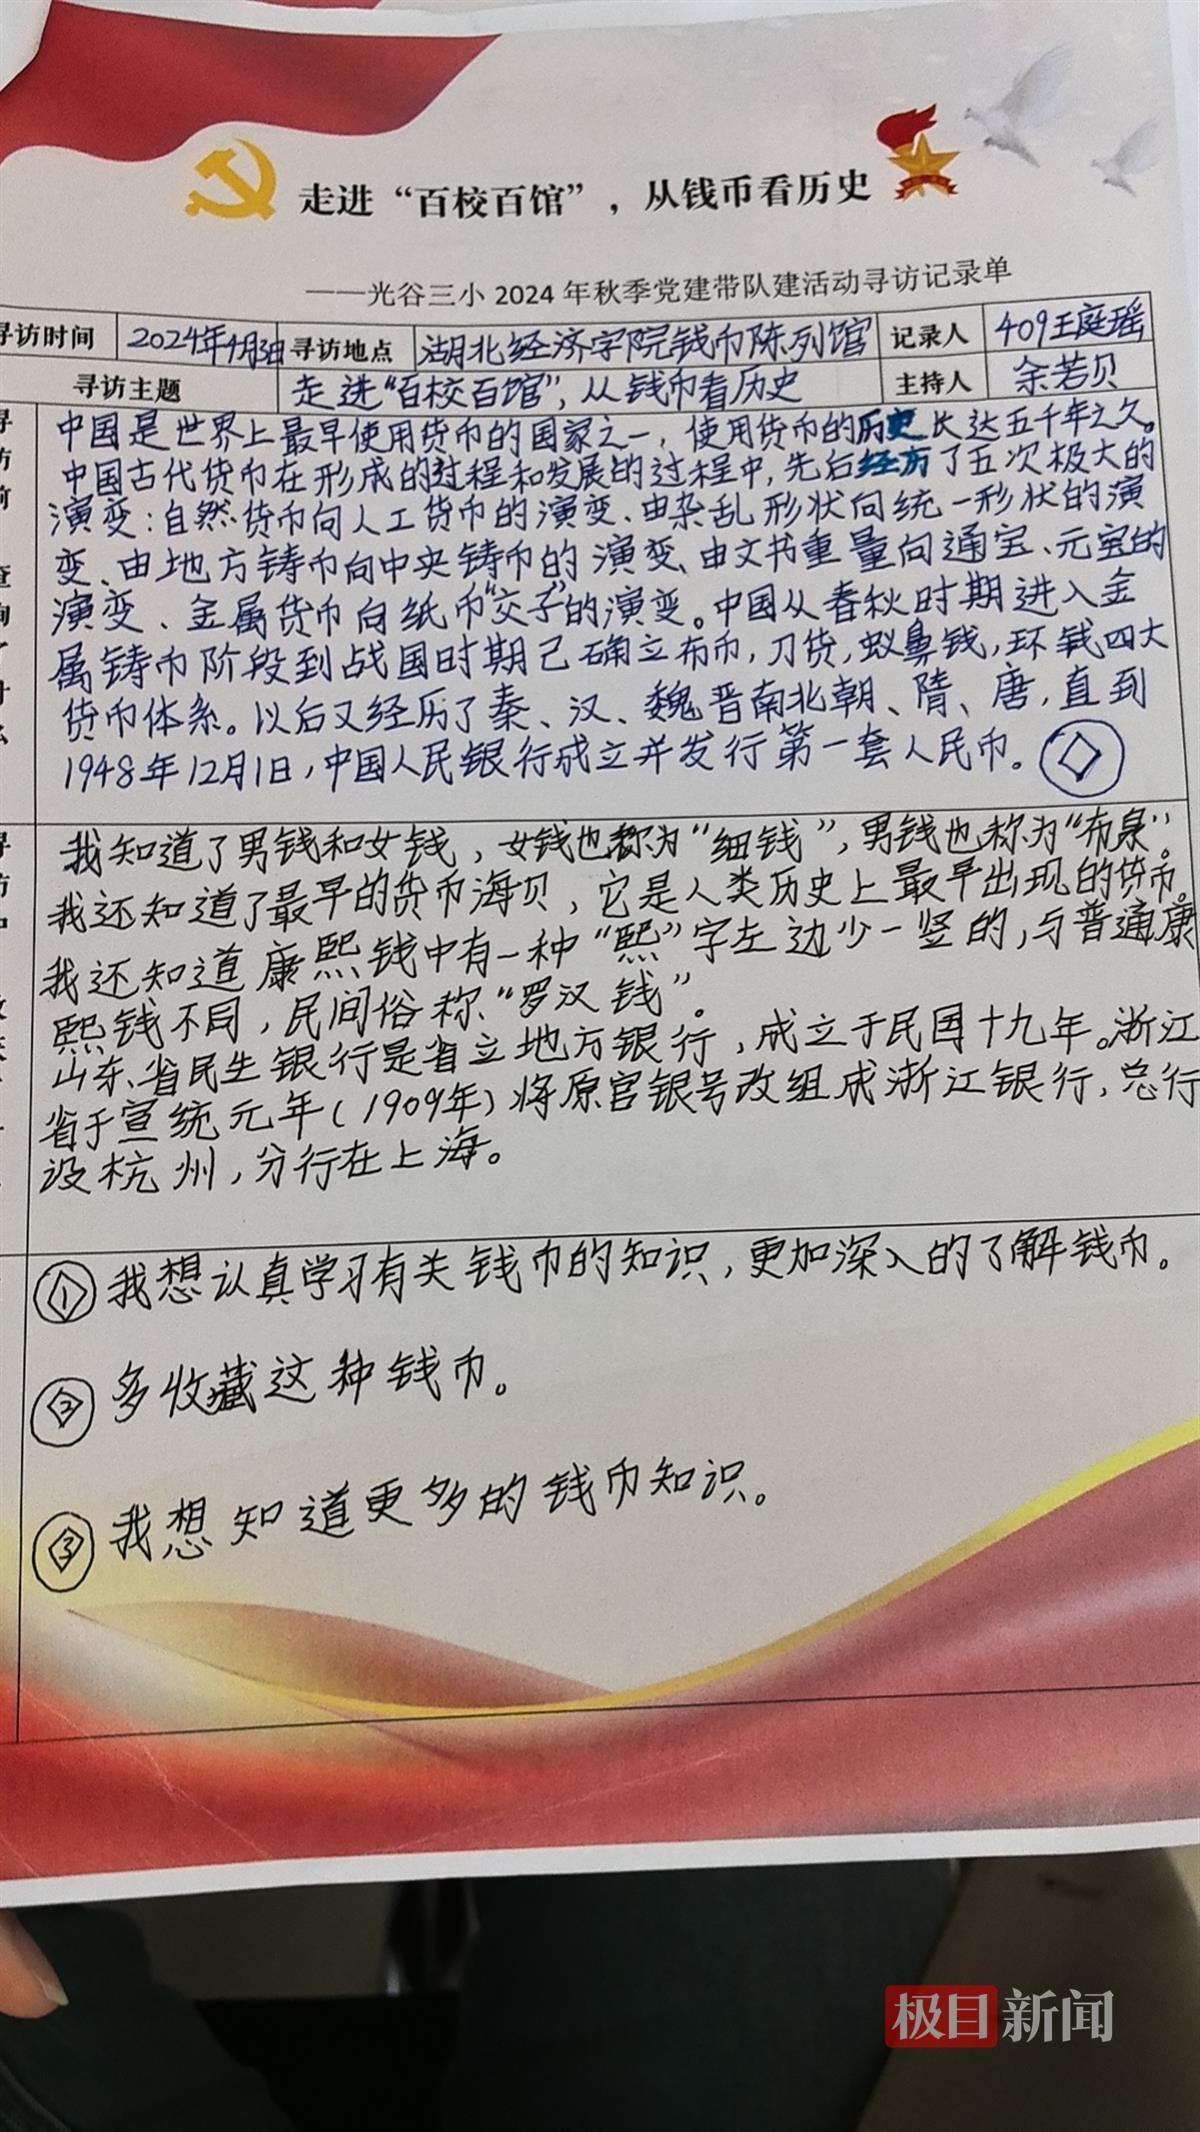 走进“百校百馆”，从钱币看历史
——光谷三小2024年秋季党建带队建活动寻访记录单
寻访时间 2024年9月3日 寻访地点 湖北经济学院钱币陈列馆 记录人 409王庭瑶
寻访主题 走进“百校百馆”，从钱币看历史 主持人 余若贝
中国是世界上最早使用货币的国家之一，使用货币的历史长达五千年之久。
中国古代货币在形成的过程和发展的过程中，先后经历了五次极大的
演变：自然货币向人工货币的演变、由杂乱形状向统一形状的演
变、由地方铸币向中央铸币的演变、由文书重量向通宝、元宝的
演变、金属货币向纸币“交子”的演变。中国从春秋时期进入金
属铸币阶段到战国时期已确立布币，刀货，蚁鼻钱，环钱四大
货币体系。以后又经历了秦、汉、魏晋南北朝、隋、唐，直到
1948年12月1日，中国人民银行成立并发行第一套人民币。
我知道了男钱和女钱，女钱也称为“细钱”，男钱也称为“布泉”。
我还知道了最早的货币海贝，它是人类历史上最早出现的货币。
我还知道康熙钱中有一种“熙”字左边少一竖的，与普通康
熙钱不同，民间俗称“罗汉钱”。
山东省民生银行是省立地方银行，成立于民国十九年。浙江
省于宣统元年(1909年)将原官银号改组成浙江银行，总行
设杭州，分行在上海。
① 我想认真学习有关钱币的知识，更加深入的了解钱币。
② 多收藏这种钱币。
③ 我想知道更多的钱币知识。
极目新闻